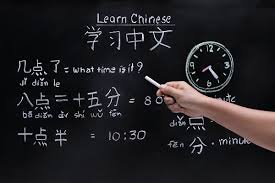 Learn Chinese
学习中文
几点了 = what time is it?
jǐ diǎn le
八点 = 十五分 = 8:
bā diǎn shí wǔ fēn
十点半 = 10:30
shí diǎn bàn
diǎn
分 · minute
fēn